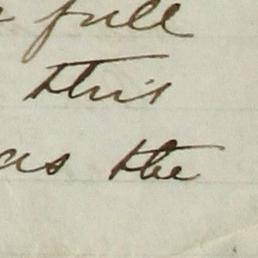 full
this
as the